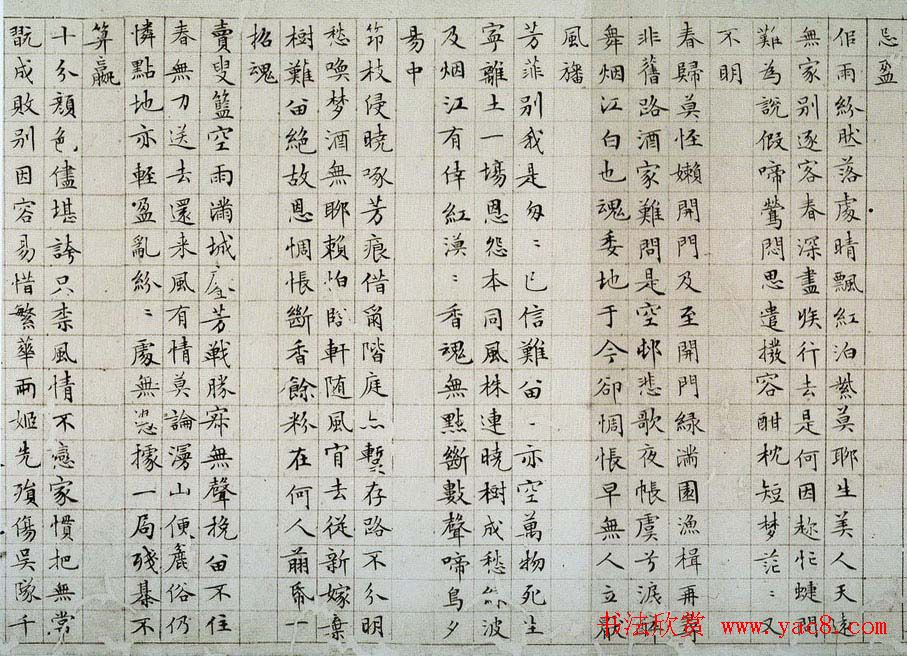 忌盈
佀雨紛然落處晴飄紅泊紫莫聊生美人天遠
無家別逐客春深盡族行去是何因趂忙蜨問
難為說假啼鶯悶思遣撥容酣枕短梦茫〻又
不明
春歸莫恠嬾開門及至開門綠滿園漁楫再尋
非舊路酒家難問是空邨悲歌夜帳虞兮淚醉
舞烟江白也魂委地于今卻惆悵早無人立厭
風旛
芳菲別我是匆〻已信難留〻亦空萬物死生
寧離土一場恩怨本同風株連曉樹成愁綠波
及烟江有倖紅漠〻香魂無點斷數聲啼鳥夕
昜中
笻枝侵曉啄芳痕借爾階庭亦暫存路不分明
愁喚梦酒無聊賴怕臨軒随風肎去從新嫁棄
樹難留絕故恩惆悵斷香餘粉在何人剪帋一
招魂
賣叟籃空雨滿城座芳戰勝寂無聲挽留不住
春無力送去還来風有情莫論漫山便麁俗仍
憐點地亦輕盈亂紛〻處無憑據一局殘棊不
算贏
十分顏色儘堪誇只柰風情不戀家慣把無常
翫成敗別因容易惜繁華兩姬先殞傷吳隊千
书法欣赏 www.yac8.com